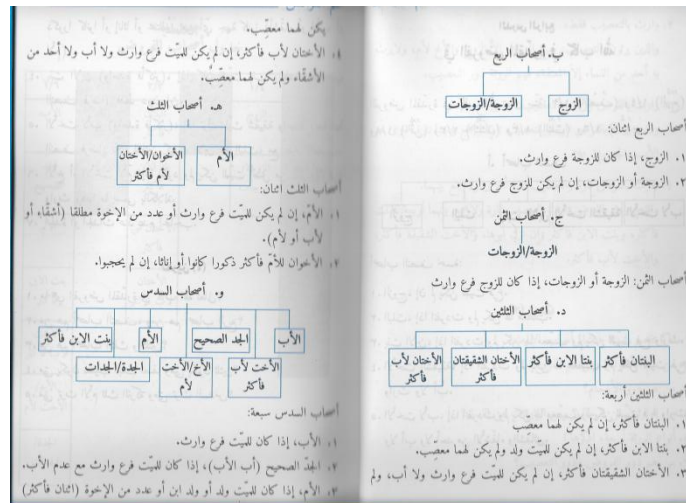 ب. أصحاب الربع
الزوج
الزوجة/الزوجات
أصحاب الربع اثنان:
١. الزوج، إذا كان للزوجة فرع وارث.
٢. الزوجة أو الزوجات، إن لم يكن للزوج فرع وارث.
ج. أصحاب الثمن
الزوجة/الزوجات
أصحاب الثمن: الزوجة أو الزوجات، إذا كان للزوج فرع وارث
د. أصحاب الثلثين
البنتان فأكثر
بنتا الابن فأكثر
الأختان الشقيقتان فأكثر
الأختان لأب فأكثر
أصحاب الثلثين أربعة:
١. البنتان فأكثر، إن لم يكن لهما معصّب
٢. بنتا الابن فأكثر، إن لم يكن للميّت ولد ولم يكن لهما معصّب.
٣. الأختان الشقيقتان فأكثر، إن لم يكن للميّت فرع وارث ولا أب، ولم
يكن لهما معصّب.
٤. الأختان لأب فأكثر، إن لم يكن للميّت فرع وارث ولا أب ولا أحد من
الأشقّاء ولم يكن لهما معصّبٌ.
هـ. أصحاب الثلث
الأم
الأخوان/الأختان
لأم فأكثر
أصحاب الثلث اثنان:
١. الأمّ، إن لم يكن للميّت فرع وارث أو عدد من الإخوة مطلقا (أشقّاء أو
لأب أو لأم).
٢. الأخوان للأمّ فأكثر ذكورا كانوا أو إناثا، إن لم يحجبوا.
و. أصحاب السدس
الأب
الجد الصحيح
الأم
بنت الابن فأكثر
الأخت لأب
فأكثر
الأخ/الأخت
لأم
الجدة/الجدات
أصحاب السدس سبعة:
١. الأب، إذا كان للميّت فرع وارث.
٢. الجدّ الصحيح (أب الأب)، إذا كان للميّت فرع وارث مع عدم الأب.
٣. الأم، إذا كان للميّت ولد أو ولد ابن أو عدد من الإخوة (اثنان فأكثر)